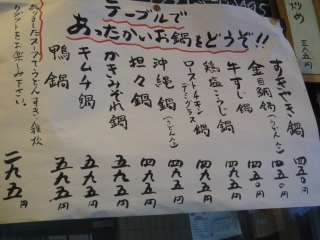 テーブルで
あったかいお鍋をどうぞ!!
すきやき鍋 四五〇円
金目鯛鍋(うどん入) 四五〇円
牛すじ鍋 四九五円
鶏塩こうじ鍋 四五〇円
ローストチキン鍋 四九五円
沖縄鍋(うどん入) 四九五円
担々鍋 五九五円
かきみぞれ鍋 五九五円
キムチ鍋 五九五円
鴨鍋 五九五円
あつあつスープでうどんすき・雑炊
などをお楽しみ下さい。
二九五円
炒め
五円